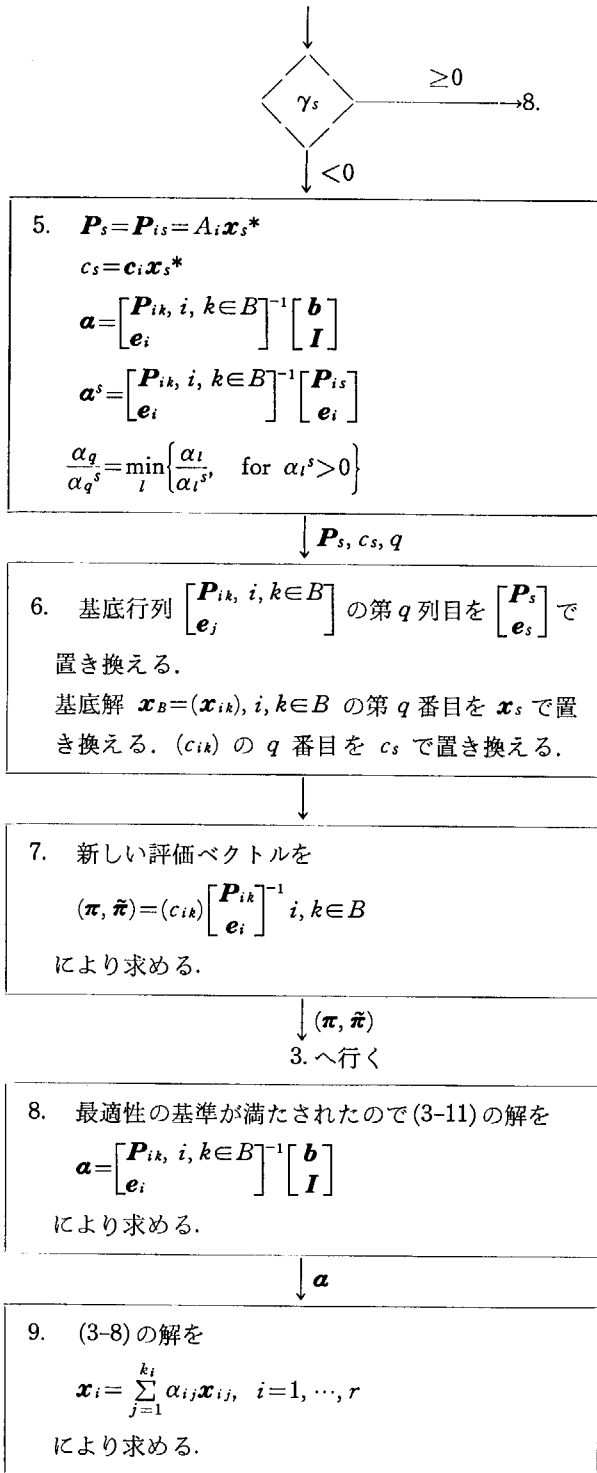 γs
≥0
→8.
<0
5. Ps=Pis=Aixs*
cs=cixs*
a=[Pik, i, k∈B
ei]⁻¹[b
I]
aˢ=[Pik, i, k∈B
ei]⁻¹[Pis
ei]
αq/αqˢ=min l{αl/αlˢ, for αlˢ>0}
Ps, cs, q
6. 基底行列 [Pik, i, k∈B
ej] の第 q 列目を [Ps
es] で
置き換える.
基底解 xB=(xik), i, k∈B の第 q 番目を xs で置
き換える. (cik) の q 番目を cs で置き換える.
7. 新しい評価ベクトルを
(π, π̃)=(cik)[Pik
ei]⁻¹ i, k∈B
により求める.
(π, π̃)
3. へ行く
8. 最適性の基準が満たされたので(3-11)の解を
a=[Pik, i, k∈B
ei]⁻¹[b
I]
により求める.
a
9. (3-8)の解を
xi=∑j=1ki αijxij, i=1, ⋯, r
により求める.